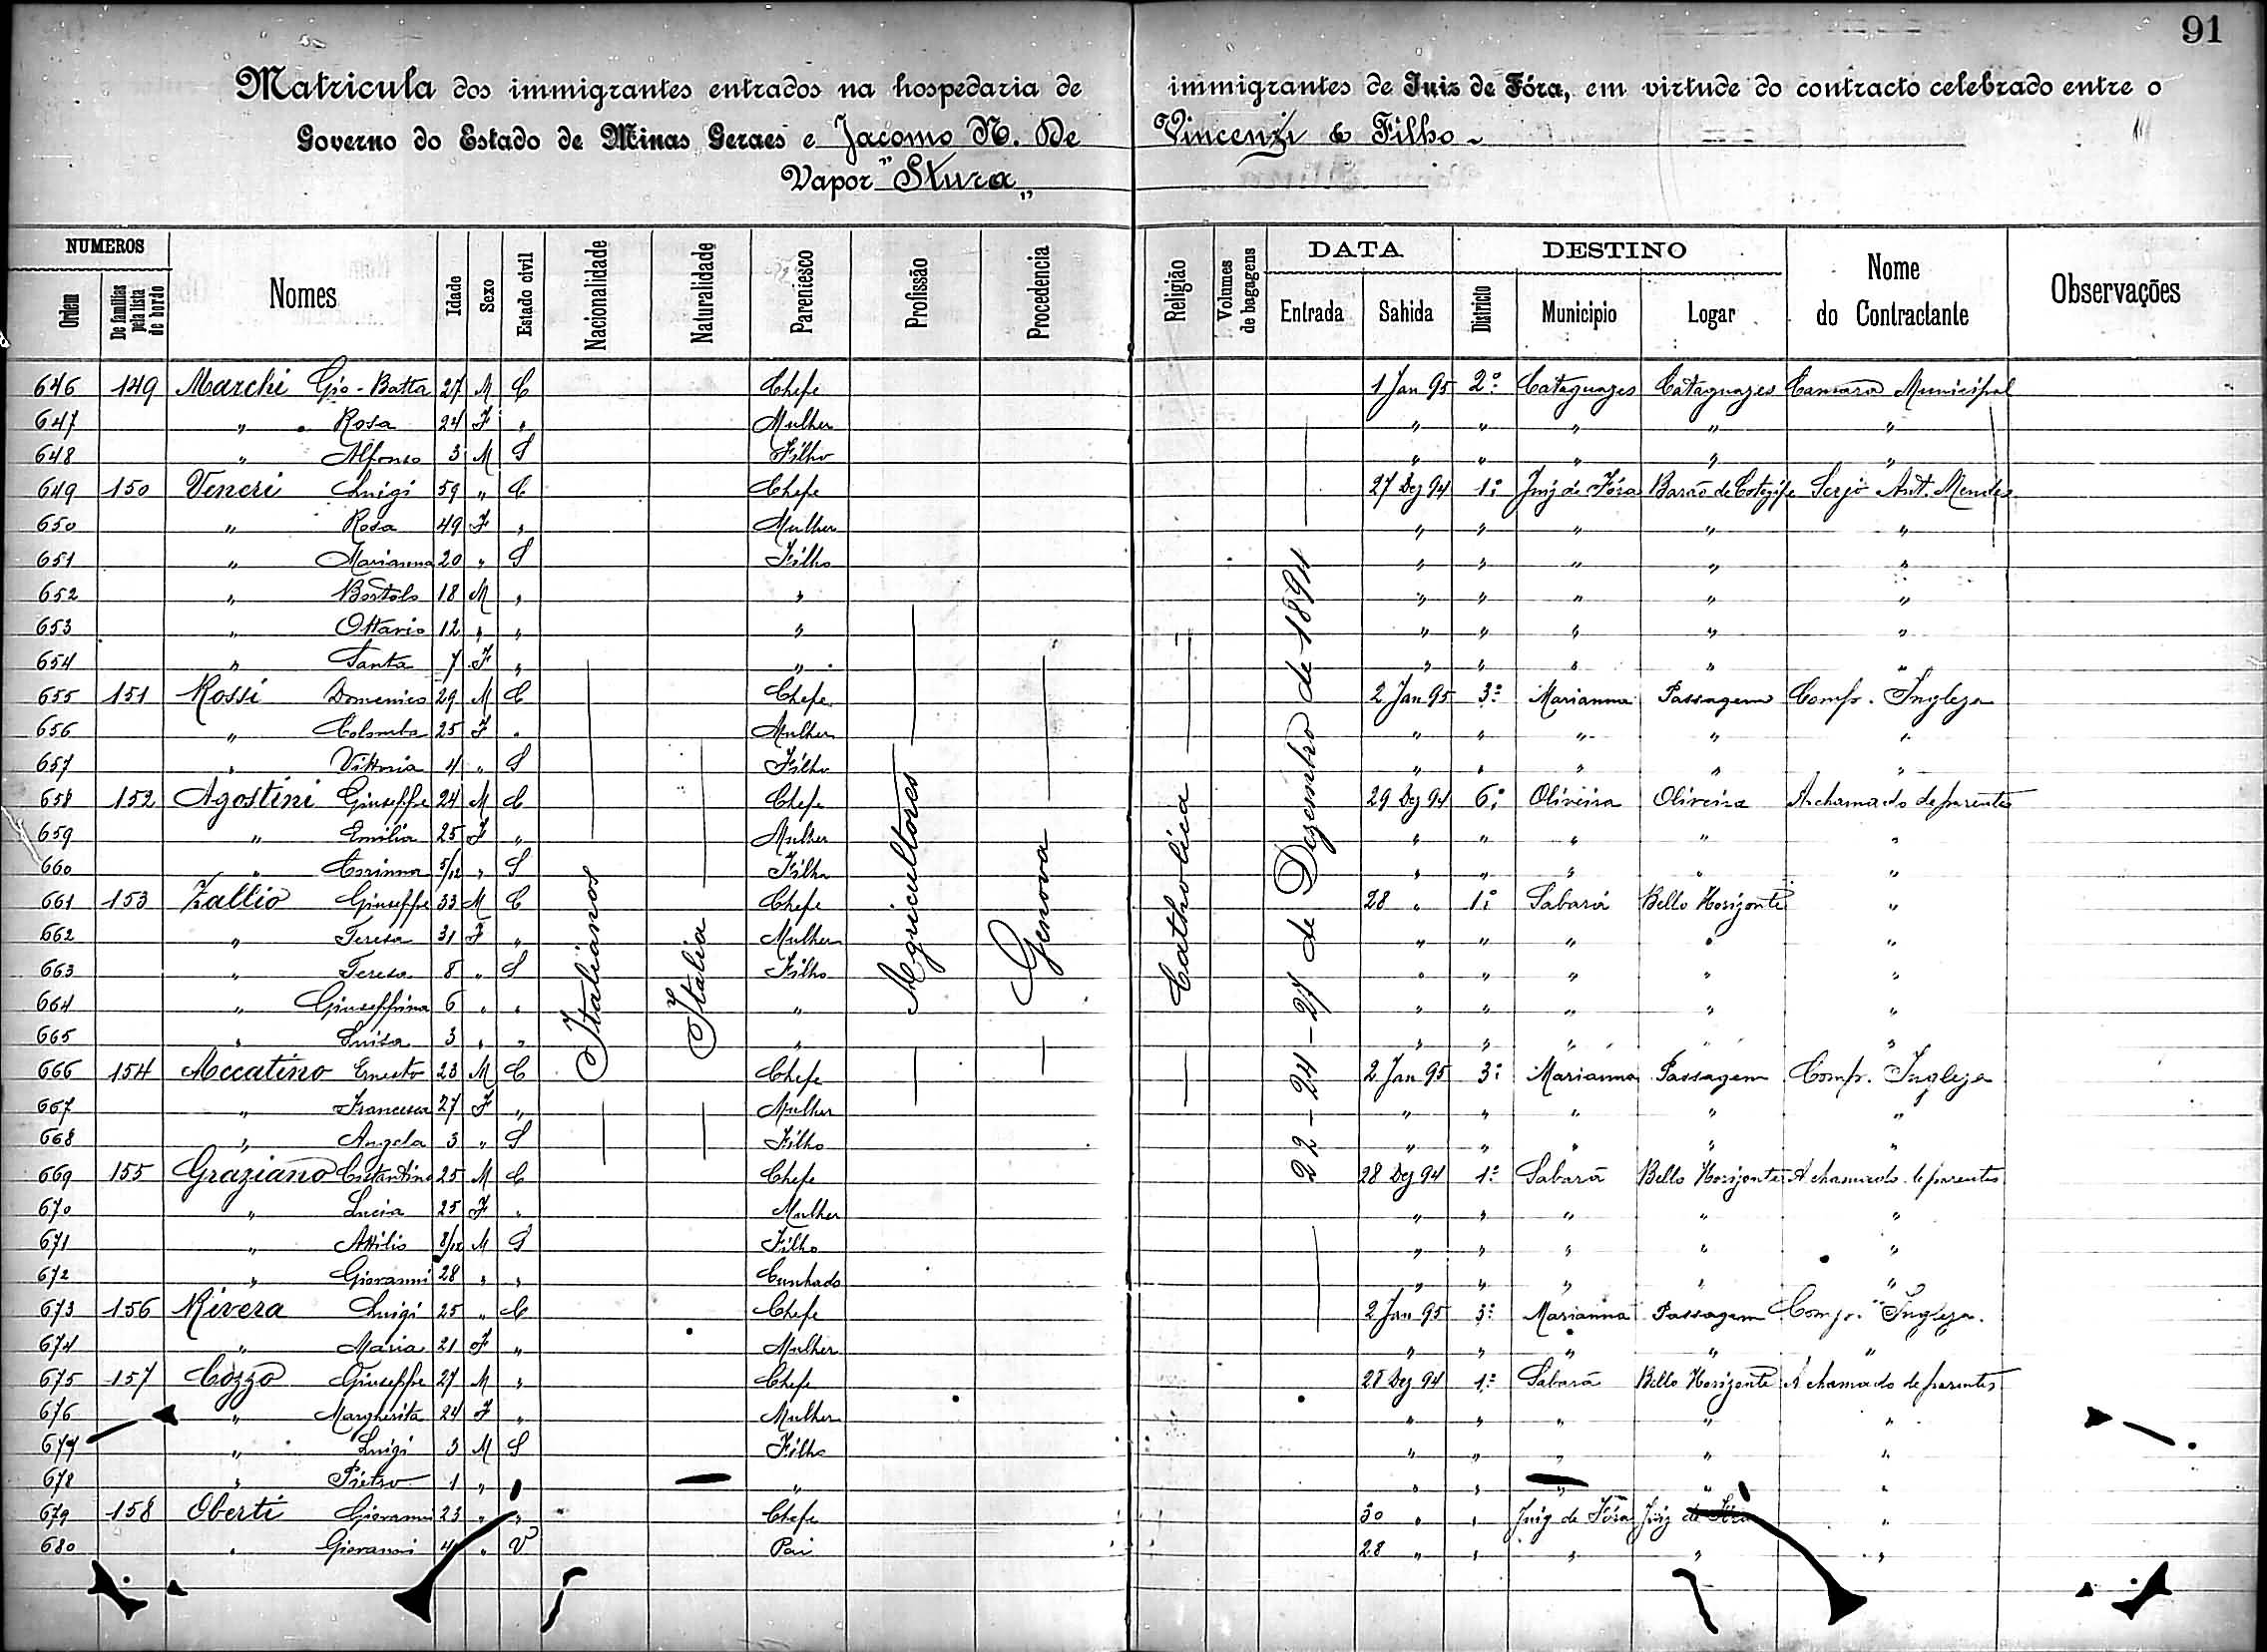 91
Matricula dos immigrantes entrados na hospedaria de immigrantes de Juiz de Fóra, em virtude do contracto celebrado entre o
Governo do Estado de Minas Geraes e Jacomo N. De Vincenzi & Filho
Vapor "Stura"
NUMEROS DATA DESTINO
Ordem De familias pela lista de bordo Nomes Idade Sexo Estado civil Nacionalidade Naturalidade Parentesco Profissão Procedencia Religião Volumes de bagagens Entrada Sahida Districto Municipio Logar Nome do Contractante Observações
Italianos Italia Agricultores Genova Catholica 22-24-27 de Dezembro de 1894
646 149 Marchi Gio-Batta 27 M C Chefe 1 Jan 95 2º Cataguazes Cataguazes Camara Municipal
647 " Rosa 24 F " Mulher " " " " "
648 " Alfonso 3 M S Filho " " " " "
649 150 Veneri Luigi 59 " C Chefe 27 Dez 94 1º Juiz de Fóra Barão de Cotegipe Serjio Ant. Mendes
650 " Rosa 49 F " Mulher " " " " "
651 " Marianna 20 " S Filho " " " " "
652 " Bortolo 18 M " " " " " " "
653 " Ottavio 12 " " " " " " " "
654 " Santa 7 F " " " " " " "
655 151 Rossi Domenico 29 M C Chefe 2 Jan 95 3º Marianna Passagem Comp. Ingleza
656 " Colomba 25 F " Mulher " " " " "
657 " Vittoria 4 " S Filho " " " " "
658 152 Agostini Giuseppe 24 M C Chefe 29 Dez 94 6º Oliveira Oliveira A chamado de parentes
659 " Emilia 25 F " Mulher " " " " "
660 " Corinna 5/12 " S Filha " " " " "
661 153 Zallio Giuseppe 33 M C Chefe 28 " 1º Sabará Bello Horizonte "
662 " Teresa 31 F " Mulher " " " " "
663 " Teresa 8 " S Filho " " " " "
664 " Giuseppina 6 " " " " " " " "
665 " Luisa 3 " " " " " " " "
666 154 Accatino Ernesto 23 M C Chefe 2 Jan 95 3º Marianna Passagem Comp. Ingleza
667 " Francesca 27 F " Mulher " " " " "
668 " Angela 3 " S Filho " " " " "
669 155 Graziano Costantino 25 M C Chefe 28 Dez 94 1º Sabará Bello Horizonte A chamado de parentes
670 " Lucia 25 F " Mulher " " " " "
671 " Attilio 8/12 M S Filho " " " " "
672 " Giovanni 28 " " Cunhado " " " " "
673 156 Rivera Luigi 25 " C Chefe 2 Jan 95 3º Marianna Passagem Comp. Ingleza
674 " Maria 21 F " Mulher " " " " "
675 157 Cozzo Giuseppe 27 M " Chefe 28 Dez 94 1º Sabará Bello Horizonte A chamado de parentes
676 " Margherita 24 F " Mulher " " " " "
677 " Luigi 3 M S Filho " " " " "
678 " Pietro 1 " " " " " " "
679 158 Oberti Giovanni 23 " " Chefe 30 " " Juiz de Fóra Juiz de Fóra "
680 " Giovanni " V Pai 28 " " " " "